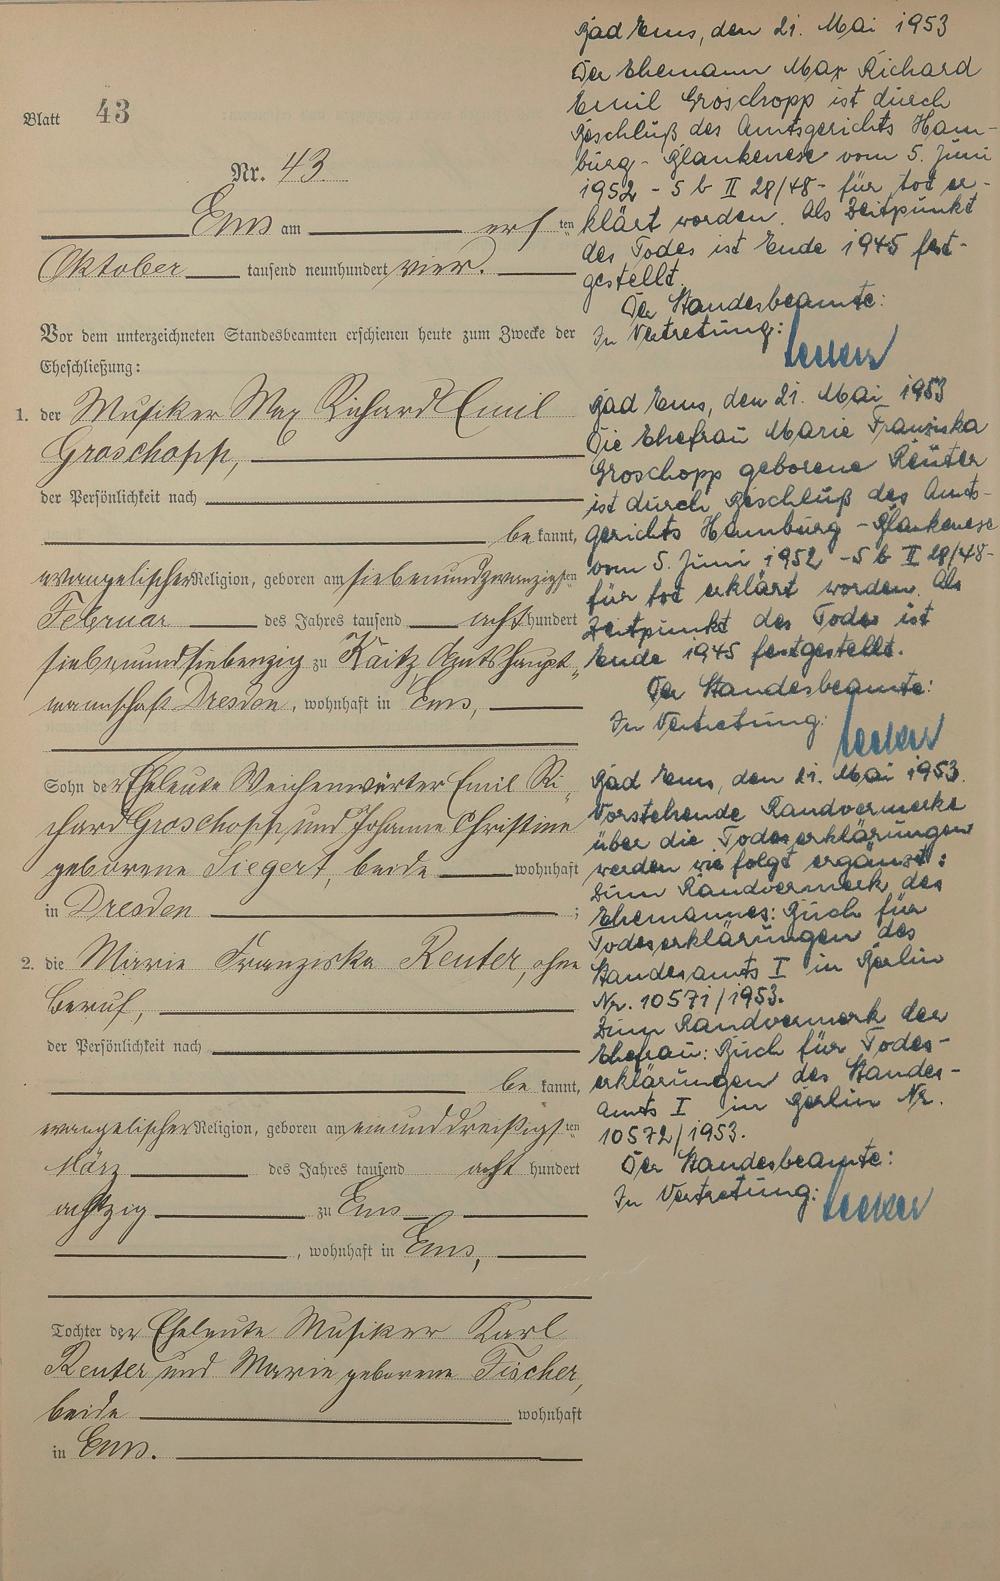 Blatt 43
Nr. 43.
Ems am ersten
Oktober tausend neunhundert vier.
Vor dem unterzeichneten Standesbeamten erschienen heute zum Zwecke der
Eheschließung:
1. der Musiker Max Richard Emil
Groschopp,
der Persönlichkeit nach
be kannt,
evangelischer Religion, geboren am siebenundzwanzigsten
Februar des Jahres tausend acht hundert
siebenundsiebenzig zu Kaitz, Amtshaupt-
mannschaft Dresden, wohnhaft in Ems,
Sohn der Eheleute Weichenwärter Emil Ri-
chard Groschopp, und Johanne Christine
geborene Siegert, beide wohnhaft
in Dresden ;
2. die Marie Franziska Reuter, ohne
Beruf,
der Persönlichkeit nach
be kannt,
evangelischer Religion, geboren am einunddreißigsten
März des Jahres tausend acht hundert
achtzig zu Ems
, wohnhaft in Ems,
Tochter der Eheleute Musiker Karl
Reuter und Marie geborene Fischer,
beide wohnhaft
in Ems.
Bad Ems, den 21. Mai 1953
Der Ehemann Max Richard
Emil Groschopp ist durch
Beschluß des Amtsgerichts Ham-
burg-Blankenese vom 5. Juni
1952 - 5 b II 28/48 - für tot er-
klärt worden. Als Zeitpunkt
des Todes ist Ende 1945 fest-
gestellt.
Der Standesbeamte:
In Vertretung:
Bad Ems, den 21. Mai 1953
Die Ehefrau Marie Franziska
Groschopp geborene Reuter
ist durch Beschluß des Amts-
gerichts Hamburg-Blankenese
vom 5. Juni 1952 - 5 b II 29/48 -
für tot erklärt worden. Als
Zeitpunkt des Todes ist
Ende 1945 festgestellt.
Der Standesbeamte:
In Vertretung:
Bad Ems, den 21. Mai 1953.
Vorstehende Randvermerke
über die Todeserklärungen
werden wie folgt ergänzt:
Zum Randvermerk des
Ehemannes: Buch für
Todeserklärungen des
Standesamts I in Berlin
Nr. 10571/1953.
Zum Randvermerk der
Ehefrau: Buch für Todes-
erklärungen des Standes-
amts I in Berlin Nr.
10572/1953.
Der Standesbeamte:
In Vertretung: